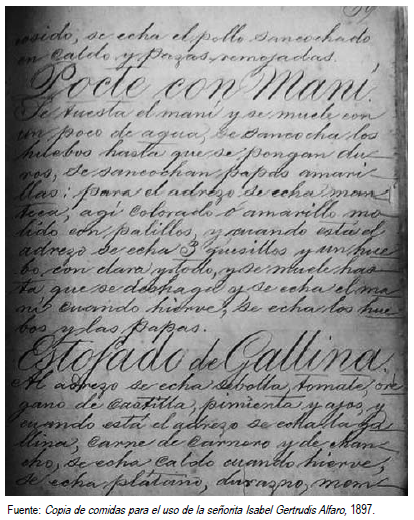 osido, se echa el pollo sancochado
en Caldo y pazas remojadas.
Pocte con Maní.
Se tuesta el maní y se muele con
un poco de agua, se sancocha los
huebos hasta que se pongan du-
ros, se sancochan papas amari-
llas; para el adrezo se echa man-
teca, agi Colorado ó amarillo mo-
lido con palillos, y cuando está el
adrezo se echa 3 quesillos y un hue-
bo, con clara y todo, y se muele has-
ta que se deshaga y se echa el ma-
ní cuando hierve, se echa los hue-
bos y las papas.
Estofado de Gallina.
Al adrezo se echa sebolla, tomate, ore-
gano de Castilla, pimienta y ajos, y
cuando está el adrezo se echa la ga-
llina, Carne de Carnero y de chan-
cho, se echa Caldo cuando hierve,
se echa platano, durazno, mem-
Fuente: Copia de comidas para el uso de la señorita Isabel Gertrudis Alfaro, 1897.